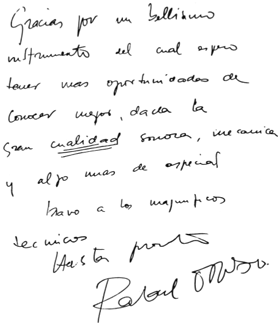 Gracias por un bellísimo
instrumento del cual espero
tener mas oportunidades de
conocer mejor, dada la
gran cualidad sonora, mecanica
y algo mas de especial
bravo a los magnificos
tecnicos
Hasta pronto
Rafael Orozco